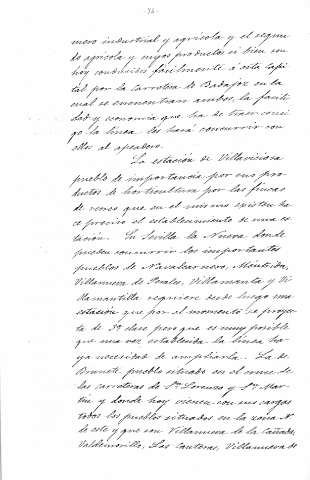 mero industrial y agricola y el segun-
do agricola y cuyos productos si bien son
hoy conducidos facilmente á esta Capi-
tal por la carretera de Badajoz en la
cual se encuentran ambos, la facili-
dad y economia que ha de traer consi-
go la linea les hará concurrir con
ellos al apeadero.
La estación de Villaviciosa
pueblo de importancia por sus pro-
ductos de horticultura por las fincas
de recreo que en el mismo existen ha-
ce preciso el establecimiento de una es-
tación. En Sevilla la Nueva donde
pueden concurrir los importantes
pueblos de Navalcarnero, Méntrida,
Villanueva de Perales, Villamanta y Vi-
llamantilla requiere desde luego una
estación que por el momento se proyec-
ta de 3ª clase pero que es muy posible
que una vez establecida la linea ha-
ya necesidad de ampliarla. La de
Brunete, pueblo situado en el cruce de
las carreteras de Sn Lorenzo y Sn Mar-
tin y donde hoy vienen con sus cargas
todos los pueblos situados en la zona N.
de este y que son Villanueva de la Cañada,
Valdemorillo, Las Canteras, Villanueva de